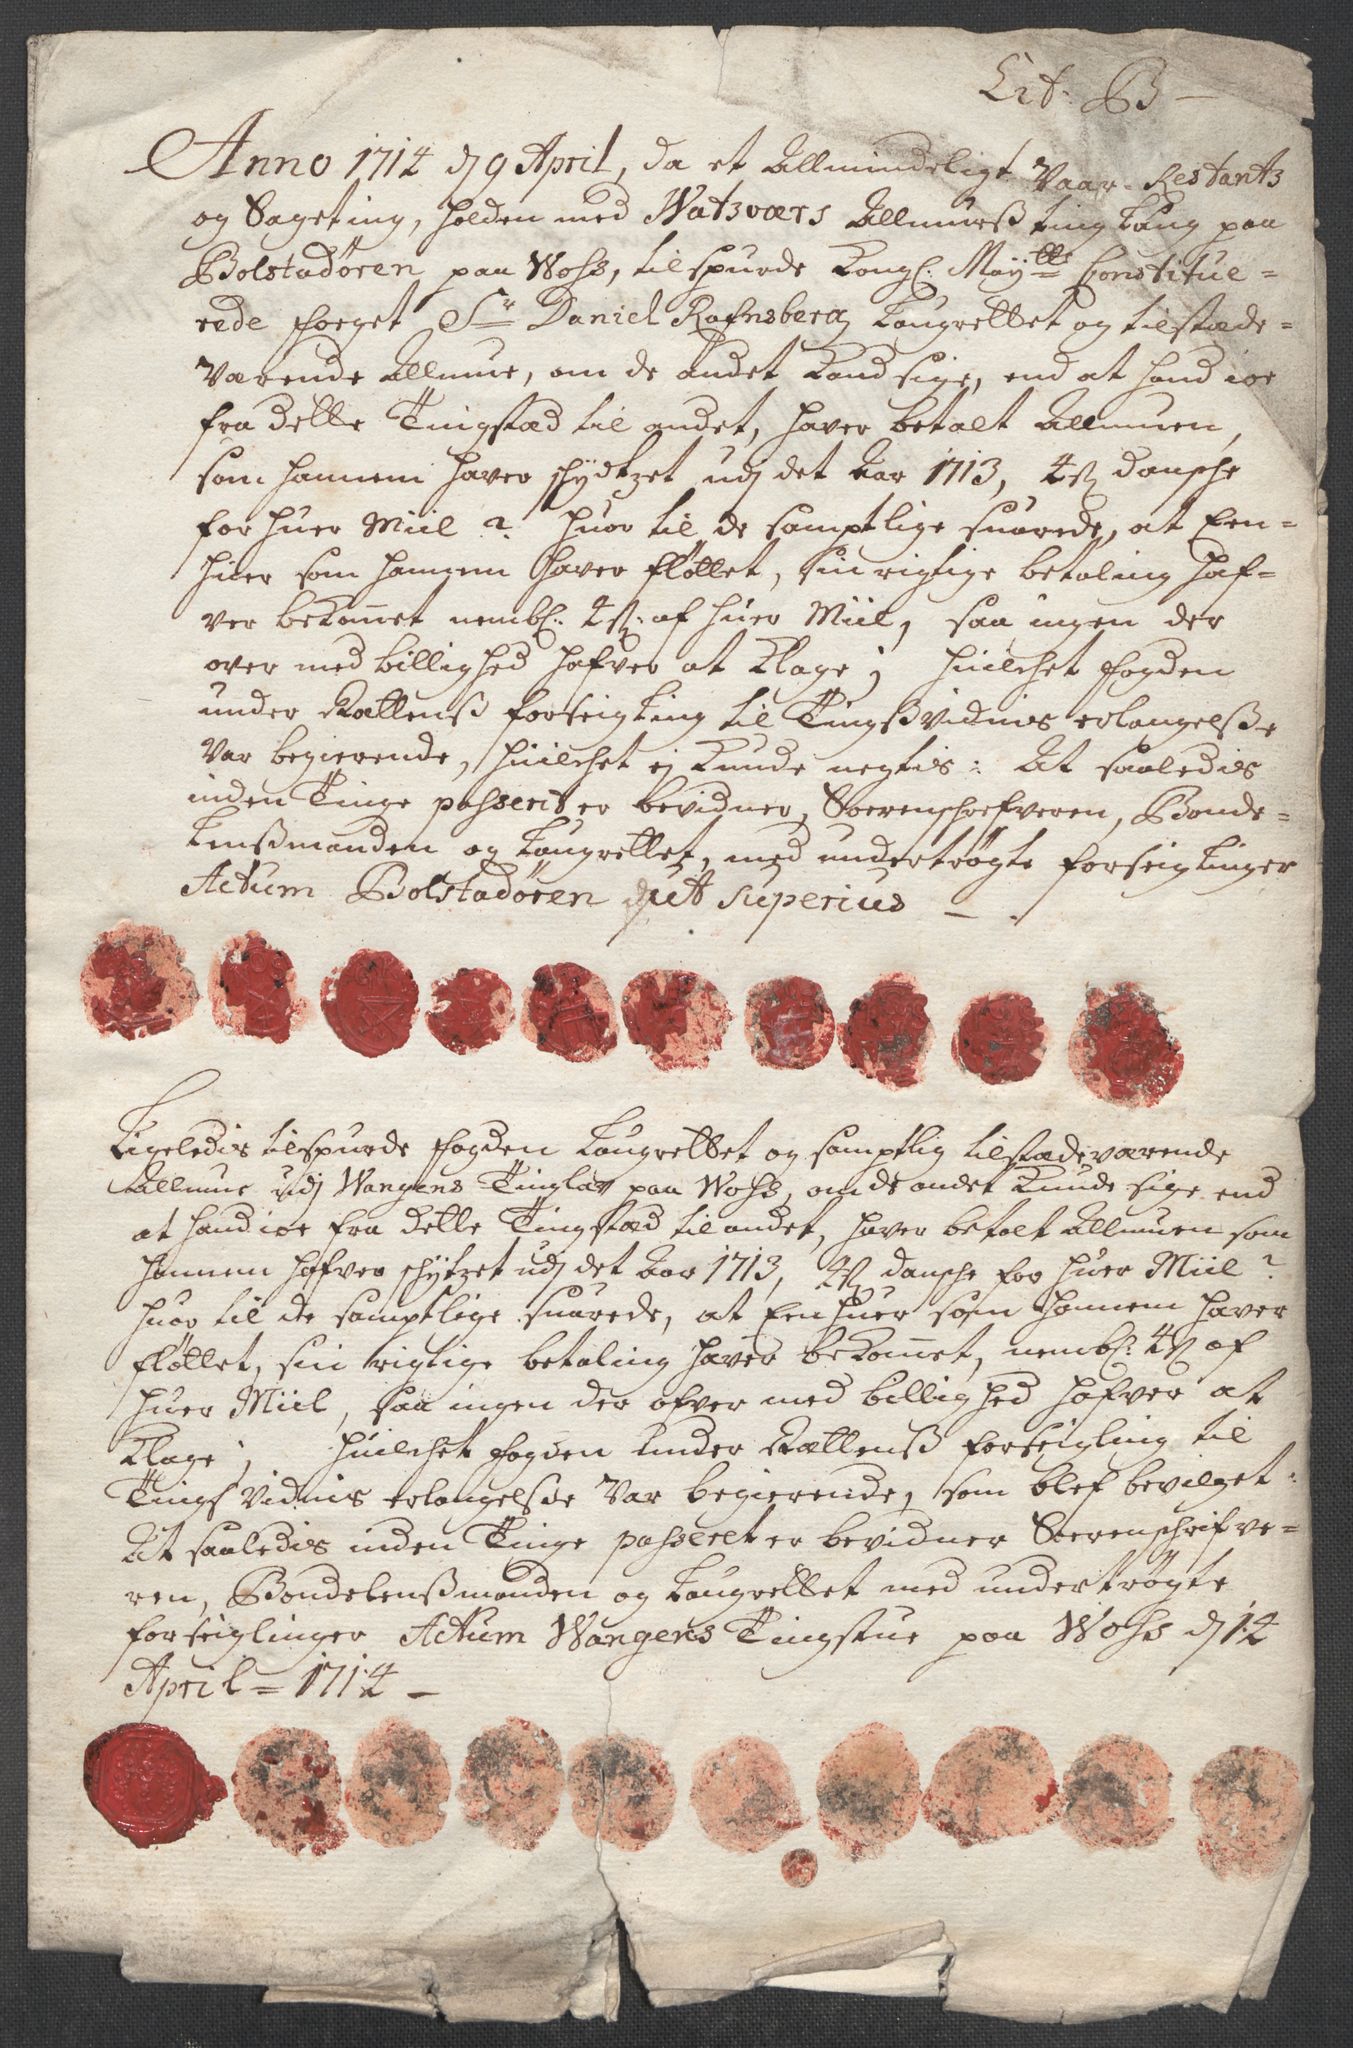 Lit: B
Anno 1714 d 9 April, da et Allmindeligt Vaar-Restantz
og Sageting, holden med Watsværs Allmueß ting Laug paa
Bolstadøren paa Wohs, tilspurde Kongl: Mayttz Constitue-
rede Foeget Sr Daniel Rafnsberg Laugrettet og tilstæde-
Værende Allmue, om de andet Kand sige, end at hand ioe
fra dette Tingstæd til andet, haver betalt Allmuen,
som hannem haver schydtzet udj det Aar 1713, 4 ß dansche
for huer Miil? huor til de samptlige suarede, at Een-
huer som hannem haver fløttet, sin rigtige betaling haf-
ver bekommet nembl: 4 ß: af huer Miil, saa ingen der
over med billighed hafver at Klage; huilchet Fogden
under Rættenß forseigling til Tingßvidnis erlangelsse
Var begierende, huilchet ej Kunde negtis: At saaledis
inden Tinge passerit er bevidner, Sorenschrefveren, Bonde-
Lenßmanden og Laugrettet, med undertrøgte forseiglinger
Actum Bolstadøren ut superius
Ligeledis tilspurde Fogden Laugrettet og samptlig tilstædeværende
Allmue udj Wangens Tinglav paa Wohs, om de andet Kunde sige end
at hand ioe fra dette Tingstæd til andet, haver betalt Allmuen som
hannem hafver schytzet udj det Aar 1713, 4 ß dansche for huer Miil?
huor til de samptlige suarede, at Eenhuer som hannem haver
fløttet, sin rigtige betaling haver bekommet, nembl: 4 ß af
huer Miil, saa ingen der ofver med billighed hafver at
Klage; huilchet Fogden under Rættenß forseigling til
Tings Vidnis erlangelsse Var begierende, som blef bevilget:
At saaledis inden Tinge passeret er bevidner Sorenschrifve-
ren, Bondelenßmanden og Laugrettet med undertrøgte
forseiglinger Actum Wangens Tingstue paa Wohs d 14
April = 1714